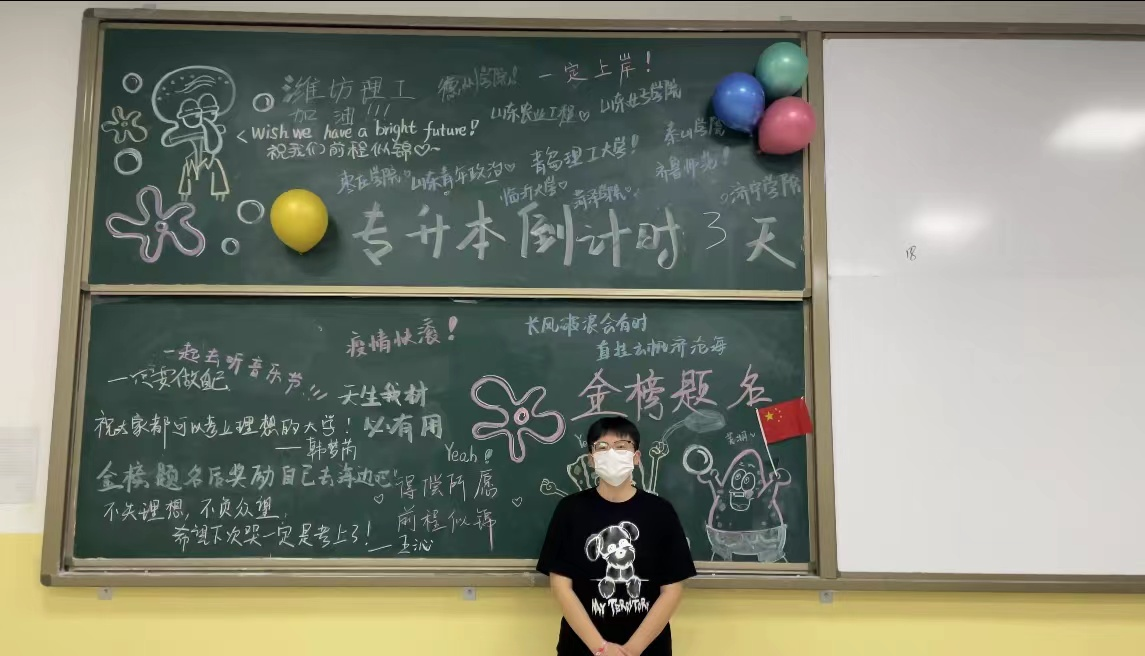 潍坊理工
加油!!!
< Wish we have a bright future!
祝我们前程似锦♡~
德州学院!
一定上岸!
山东农业工程♡
山东女子学院
泰山学院
枣庄学院♡
山东青年政治♡
青岛理工大学!
齐鲁师范!
临沂大学♡
菏泽学院♡
济宁学院
专升本倒计时3天
18
疫情快滚!
长风破浪会有时
直挂云帆济沧海
一起去听音乐节!!!
一定要做自己
天生我材
必有用
金榜题名
祝大家都可以考上理想的大学!
Yeah!
金榜题名后奖励自己去海边吧
得偿所愿
前程似锦
不失理想,不负众望.
希望下次哭一定是考上了!
——王沁
MY TERRITORY